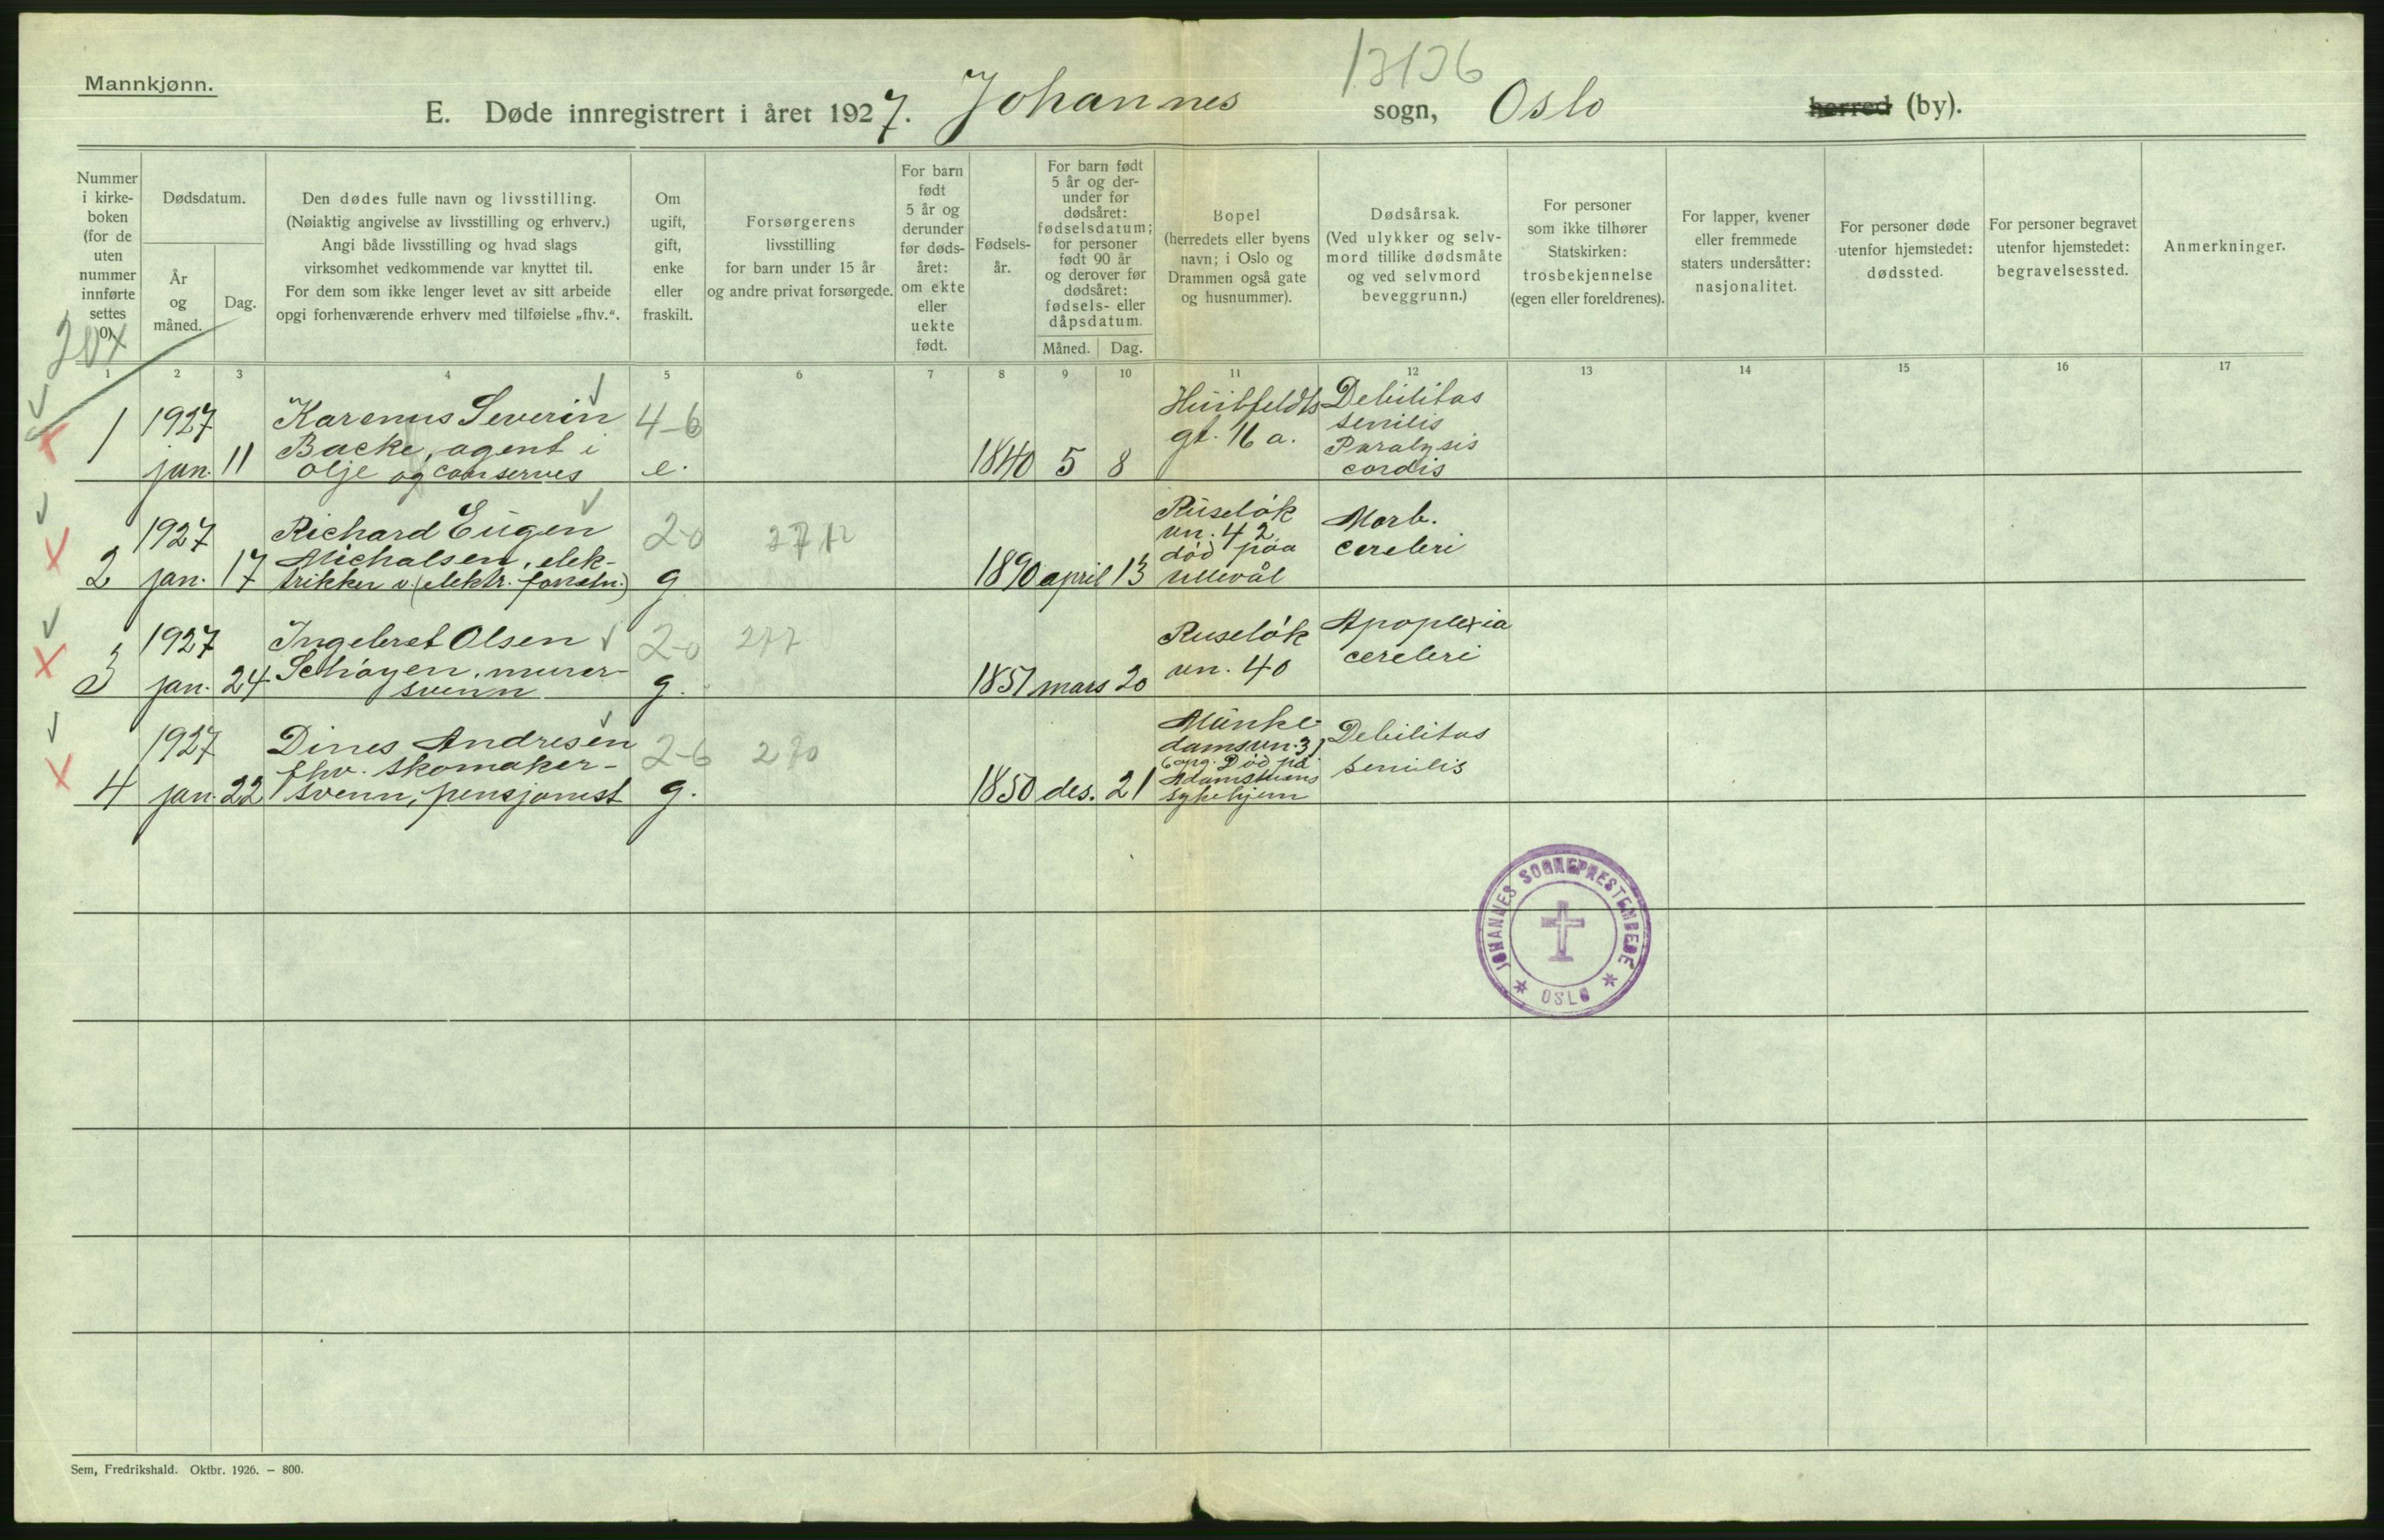 Mannkjønn.
13136
E. Døde innregistrert i året 1927. Johannes sogn, Oslo herred (by).
Nummer i kirke-boken (for de uten nummer innførte settes 0).
Dødsdatum.
År og måned.
Dag.
Den dødes fulle navn og livsstilling.
(Nøiaktig angivelse av livsstilling og erhverv.)
Angi både livsstilling og hvad slags
virksomhet vedkommende var knyttet til.
For dem som ikke lenger levet av sitt arbeide
opgi forhenværende erhverv med tilføielse „fhv.“.
Om
ugift,
gift,
enke
eller
fraskilt.
Forsørgerens
livsstilling
for barn under 15 år
og andre privat forsørgede.
For barn
født
5 år og
derunder
før døds-
året:
om ekte
eller
uekte
født.
Fødsels-
år.
For barn født
5 år og der-
under før
dødsåret:
fødselsdatum;
for personer
født 90 år
og derover før
dødsåret:
fødsels- eller
dåpsdatum.
Måned. Dag.
Bopel
(herredets eller byens
navn; i Oslo og
Drammen også gate
og husnummer).
Dødsårsak.
(Ved ulykker og selv-
mord tillike dødsmåte
og ved selvmord
beveggrunn.)
For personer
som ikke tilhører
Statskirken:
trosbekjennelse
(egen eller foreldrenes).
For lapper, kvener
eller fremmede
staters undersåtter:
nasjonalitet.
For personer døde
utenfor hjemstedet:
dødssted.
For personer begravet
utenfor hjemstedet:
begravelsessted.
Anmerkninger.
1 2 3 4 5 6 7 8 9 10 11 12 13 14 15 16 17
1
1927
jan. 11
Karenus Severin
Backe, agent i
olje og conserves
4-6
e.
1840 5 8
Huitfeldts
gt. 16 a.
Debilitas
senilis
Paralysis
cordis
2
1927
jan. 17
Richard Eugen
Michalsen, elek-
trikker v. (elektr. forretn.)
2-0
g
1890 april 13
Ruseløk
vn. 42
død paa
Ullevål
Morb.
cerebri
3
1927
jan. 24
Ingebret Olsen
Schøyen, murer-
svenn
2-0 277
g.
1851 mars 20
Ruseløk
vn. 40
Apoplexia
cerebri
4
1927
jan. 22
Dines Andresen
fhv. skomaker-
svenn, pensjonist
2-6 270
g.
1850 des. 21
Munke
damsvn. 31
Død på
Adamstuens
sykehjem
Debilitas
senilis
JOHANNES SOGNEPRESTEMBEDE
* OSLO *
Sem, Fredrikshald. Oktbr. 1926. — 800.